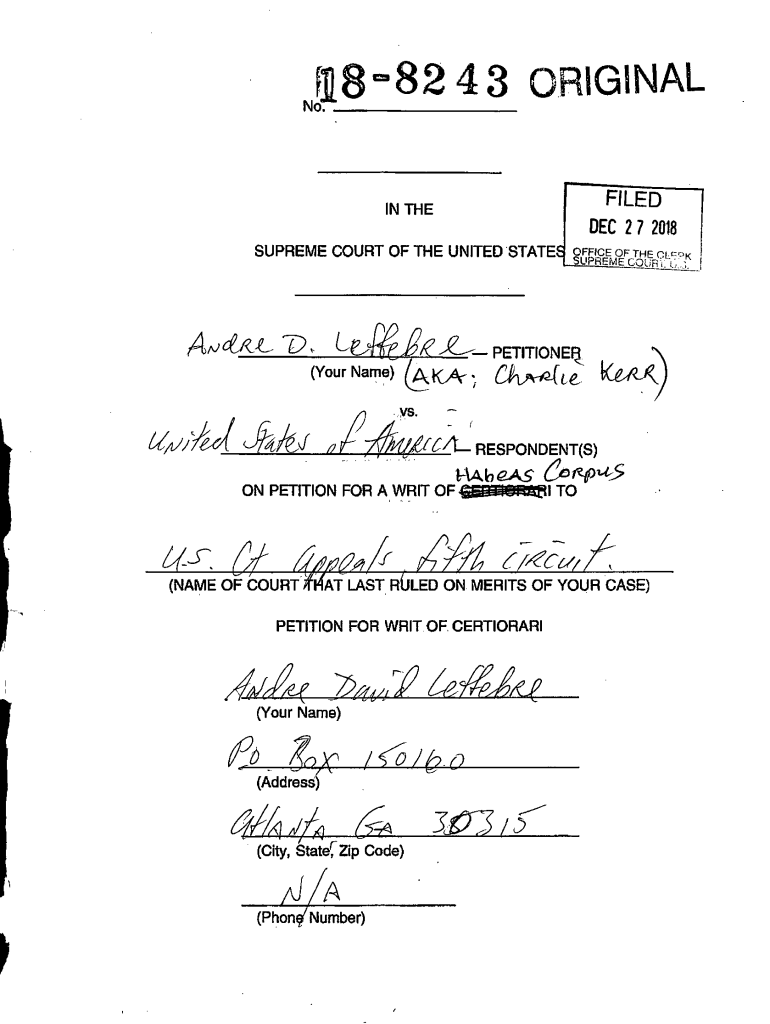 18-8243 ORIGINAL
No.
IN THE
FILED
DEC 27 2018
OFFICE OF THE CLERK
SUPREME COURT, U.S.
SUPREME COURT OF THE UNITED STATES
Andre D. Leffebre — PETITIONER
(Your Name) (AKA; Charlie Kerr)
vs.
United States of America — RESPONDENT(S)
Habeas Corpus
ON PETITION FOR A WRIT OF CERTIORARI TO
U.S. Ct appeals, fifth circuit.
(NAME OF COURT THAT LAST RULED ON MERITS OF YOUR CASE)
PETITION FOR WRIT OF CERTIORARI
Andre David Leffebre
(Your Name)
Po Box 150160
(Address)
Atlanta GA 30315
(City, State, Zip Code)
N/A
(Phone Number)